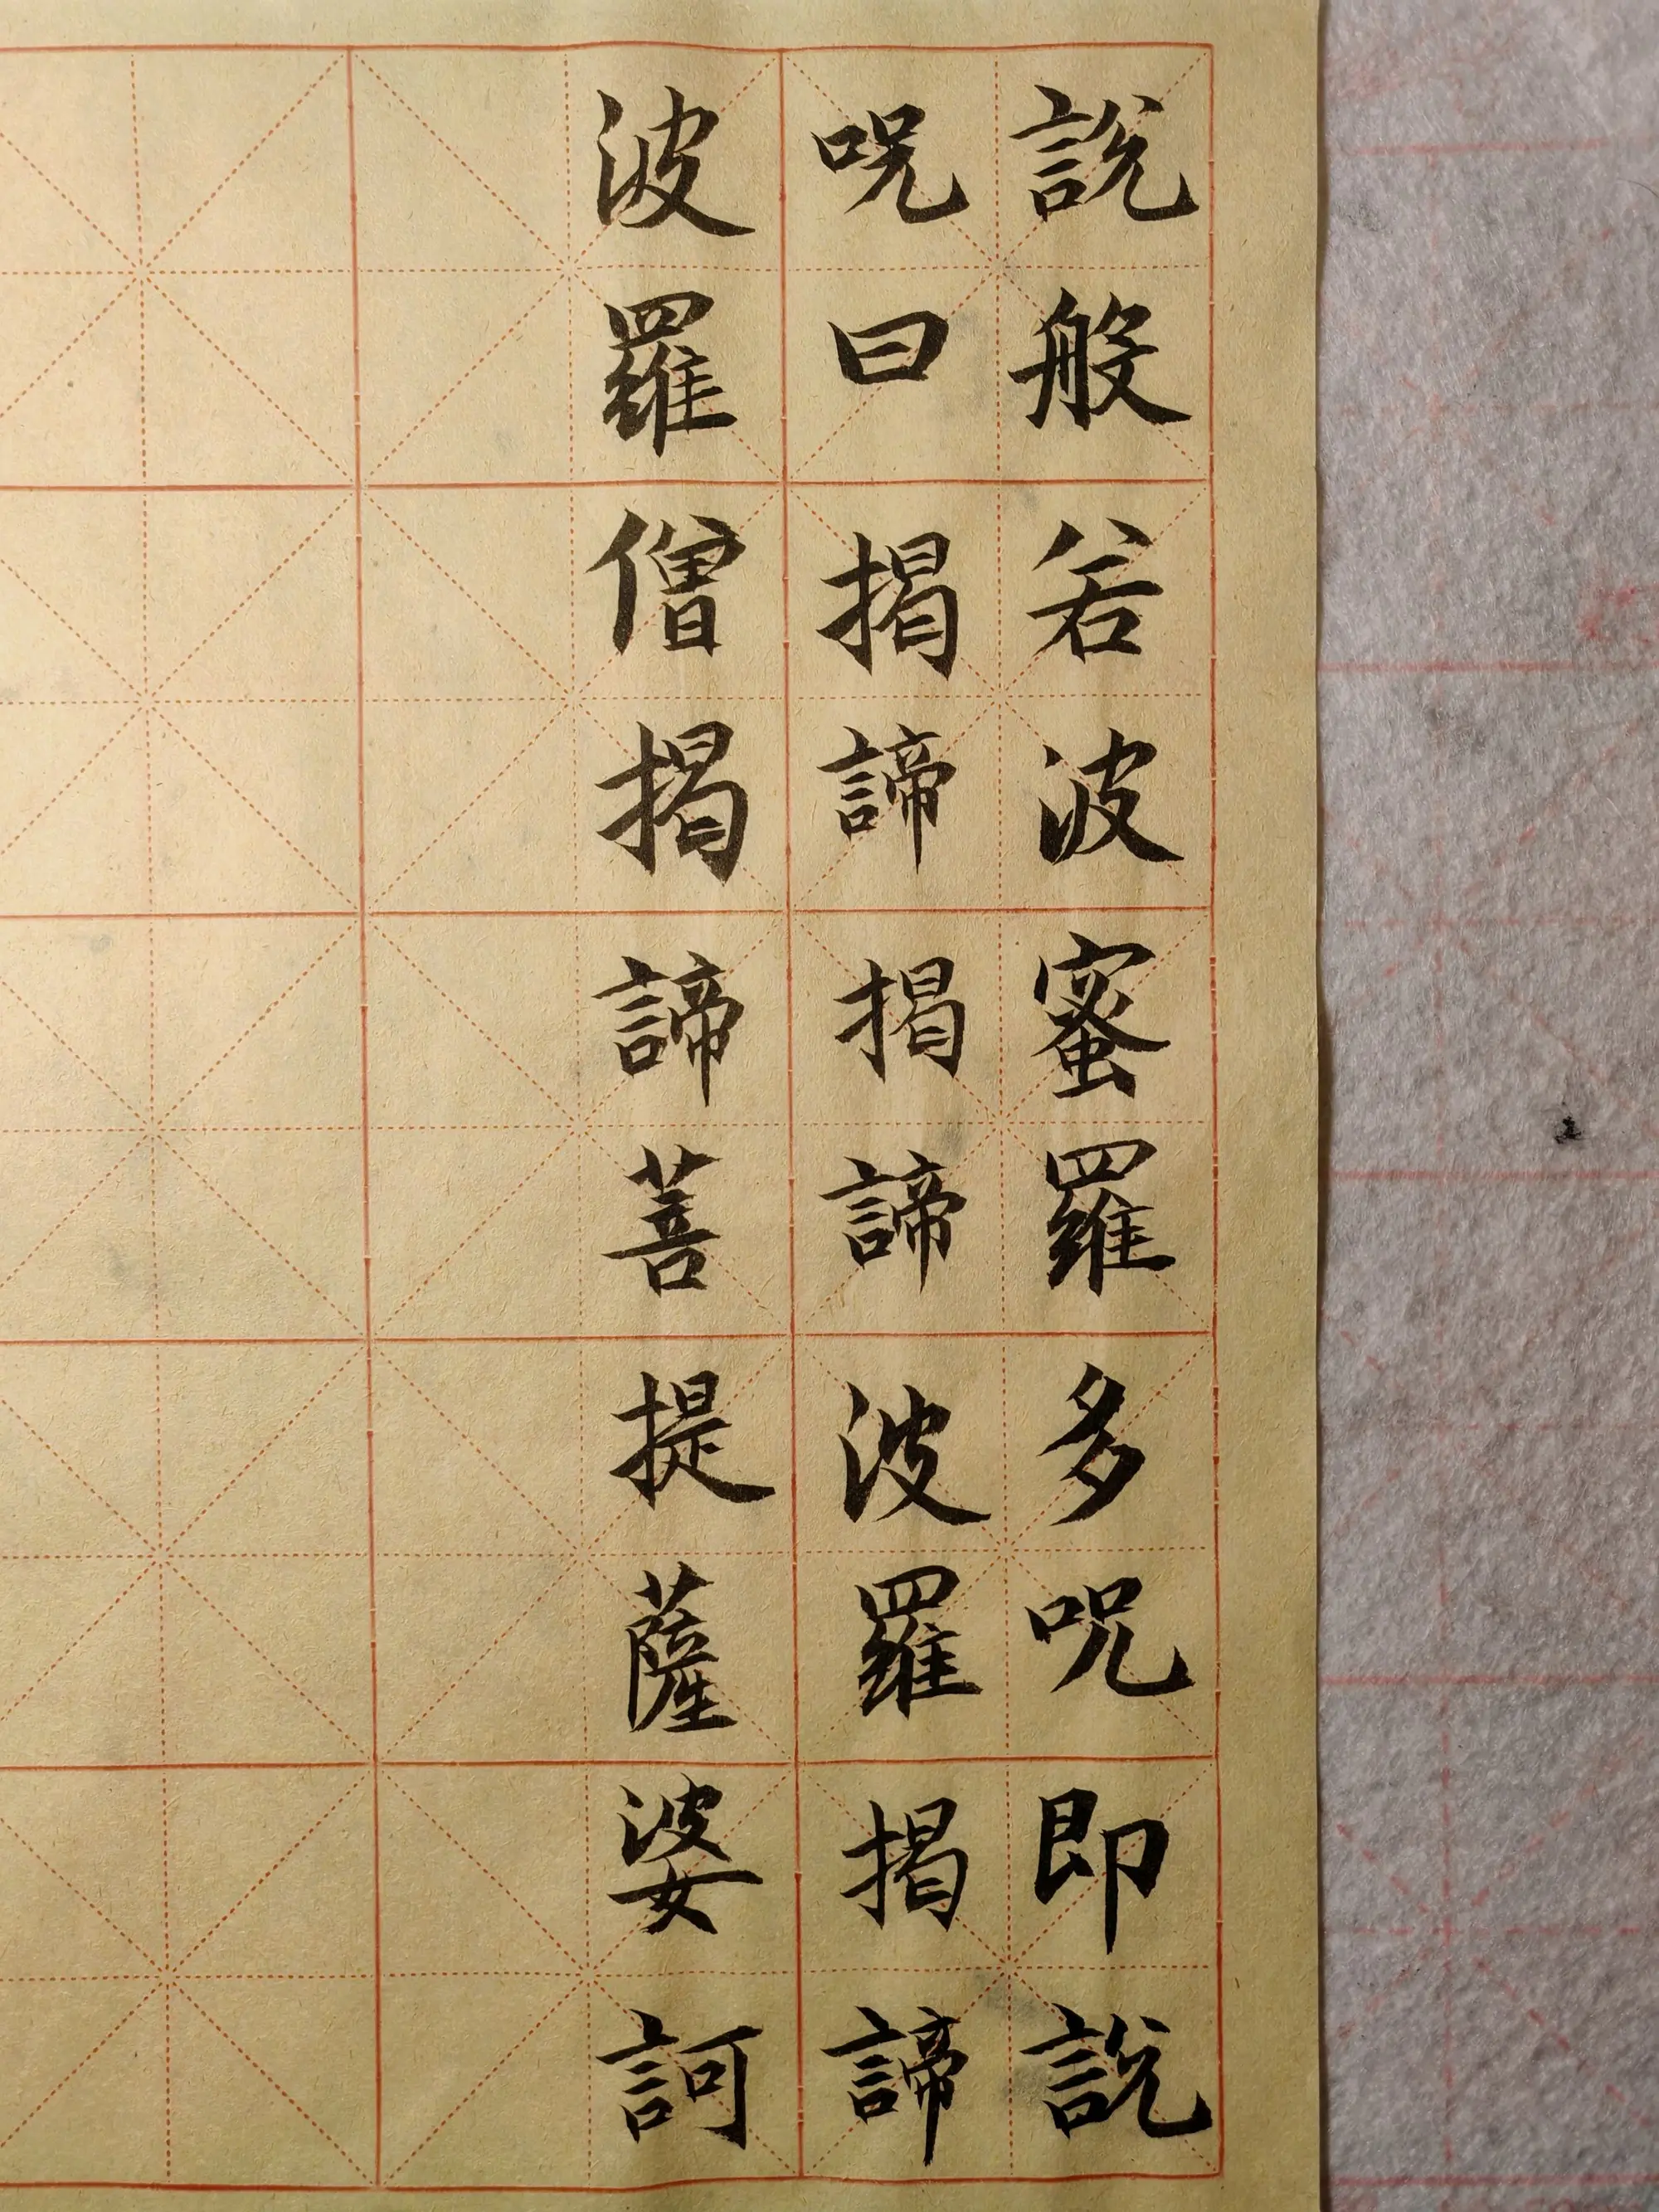 說般若波蜜羅多呪即說
呪曰揭諦揭諦波羅揭諦
波羅僧揭諦菩提薩婆訶